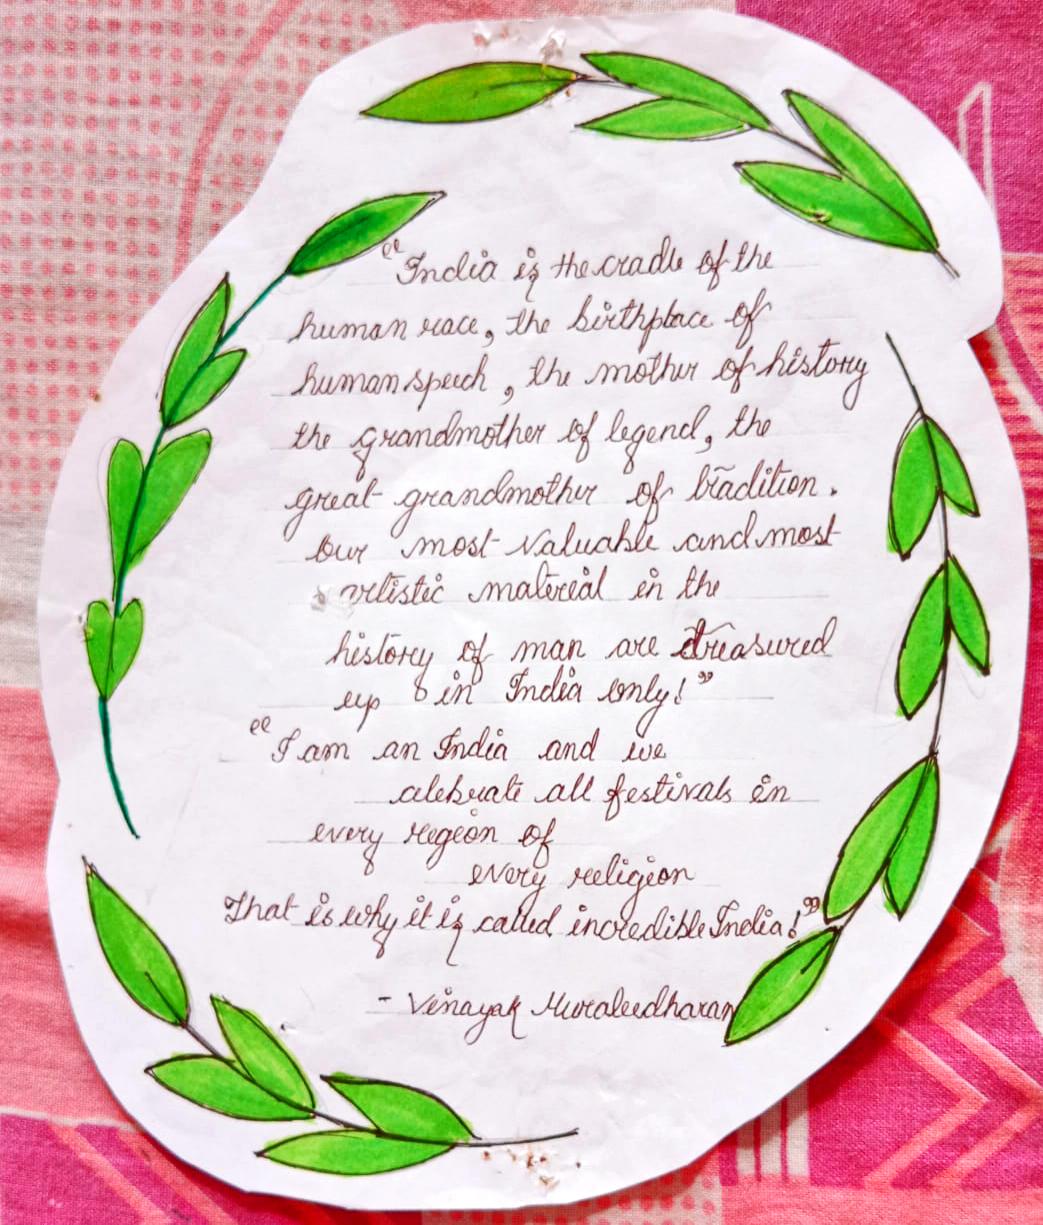 "India is the cradle of the
human race, the birthplace of
human speech, the mother of history
the grandmother of legend, the
great grandmother of tradition.
our most valuable and most
artistic material in the
history of man are treasured
up in India only!"
"I am an India and we
celebrate all festivals in
every region of
every religion
That is why it is called incredible India!"
- Vinayak Muraleedharan